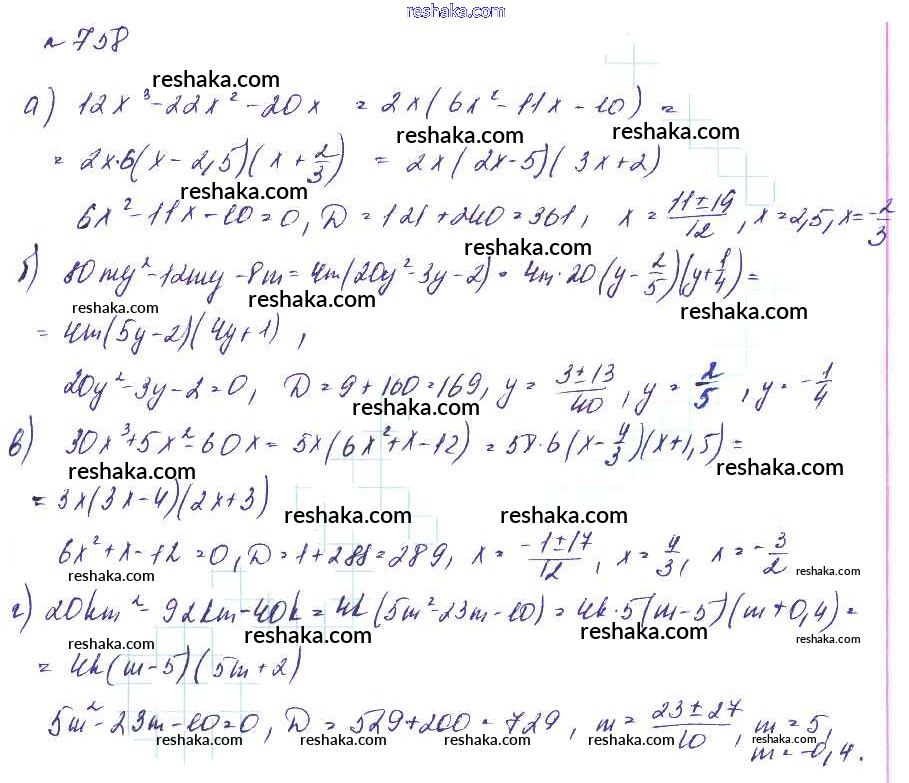 reshaka.com
№ 758
reshaka.com
а) 12x³-22x²-20x = 2x(6x²-11x-10) =
reshaka.com reshaka.com
= 2x·6(x-2,5)(x+2/3) = 2x(2x-5)(3x+2)
reshaka.com reshaka.com
6x²-11x-10=0, D=121+240=361, x=(11±19)/12, x=2,5, x=-2/3
reshaka.com reshaka.com
б) 80my²-12my-8m=4m(20y²-3y-2)=4m·20(y-2/5)(y+1/4)=
reshaka.com reshaka.com reshaka.com
= 4m(5y-2)(4y+1),
20y²-3y-2=0, D=9+160=169, y=(3±13)/40, y=2/5, y=-1/4
reshaka.com
в) 30x³+5x²-60x=5x(6x²+x-12)=5x·6(x-4/3)(x+1,5)=
reshaka.com reshaka.com reshaka.com
= 3x(3x-4)(2x+3)
reshaka.com reshaka.com
6x²+x-12=0, D=1+288=289, x=(-1±17)/12, x=4/3, x=-3/2
reshaka.com reshaka.com reshaka.com
г) 20km²-92km-40k=4k(5m²-23m-10)=4k·5(m-5)(m+0,4)=
reshaka.com reshaka.com reshaka.com
= 4k(m-5)(5m+2)
5m²-23m-10=0, D=529+200=729, m=(23±27)/10, m=5,
m=-0,4.
reshaka.com reshaka.com reshaka.com reshaka.com reshaka.com